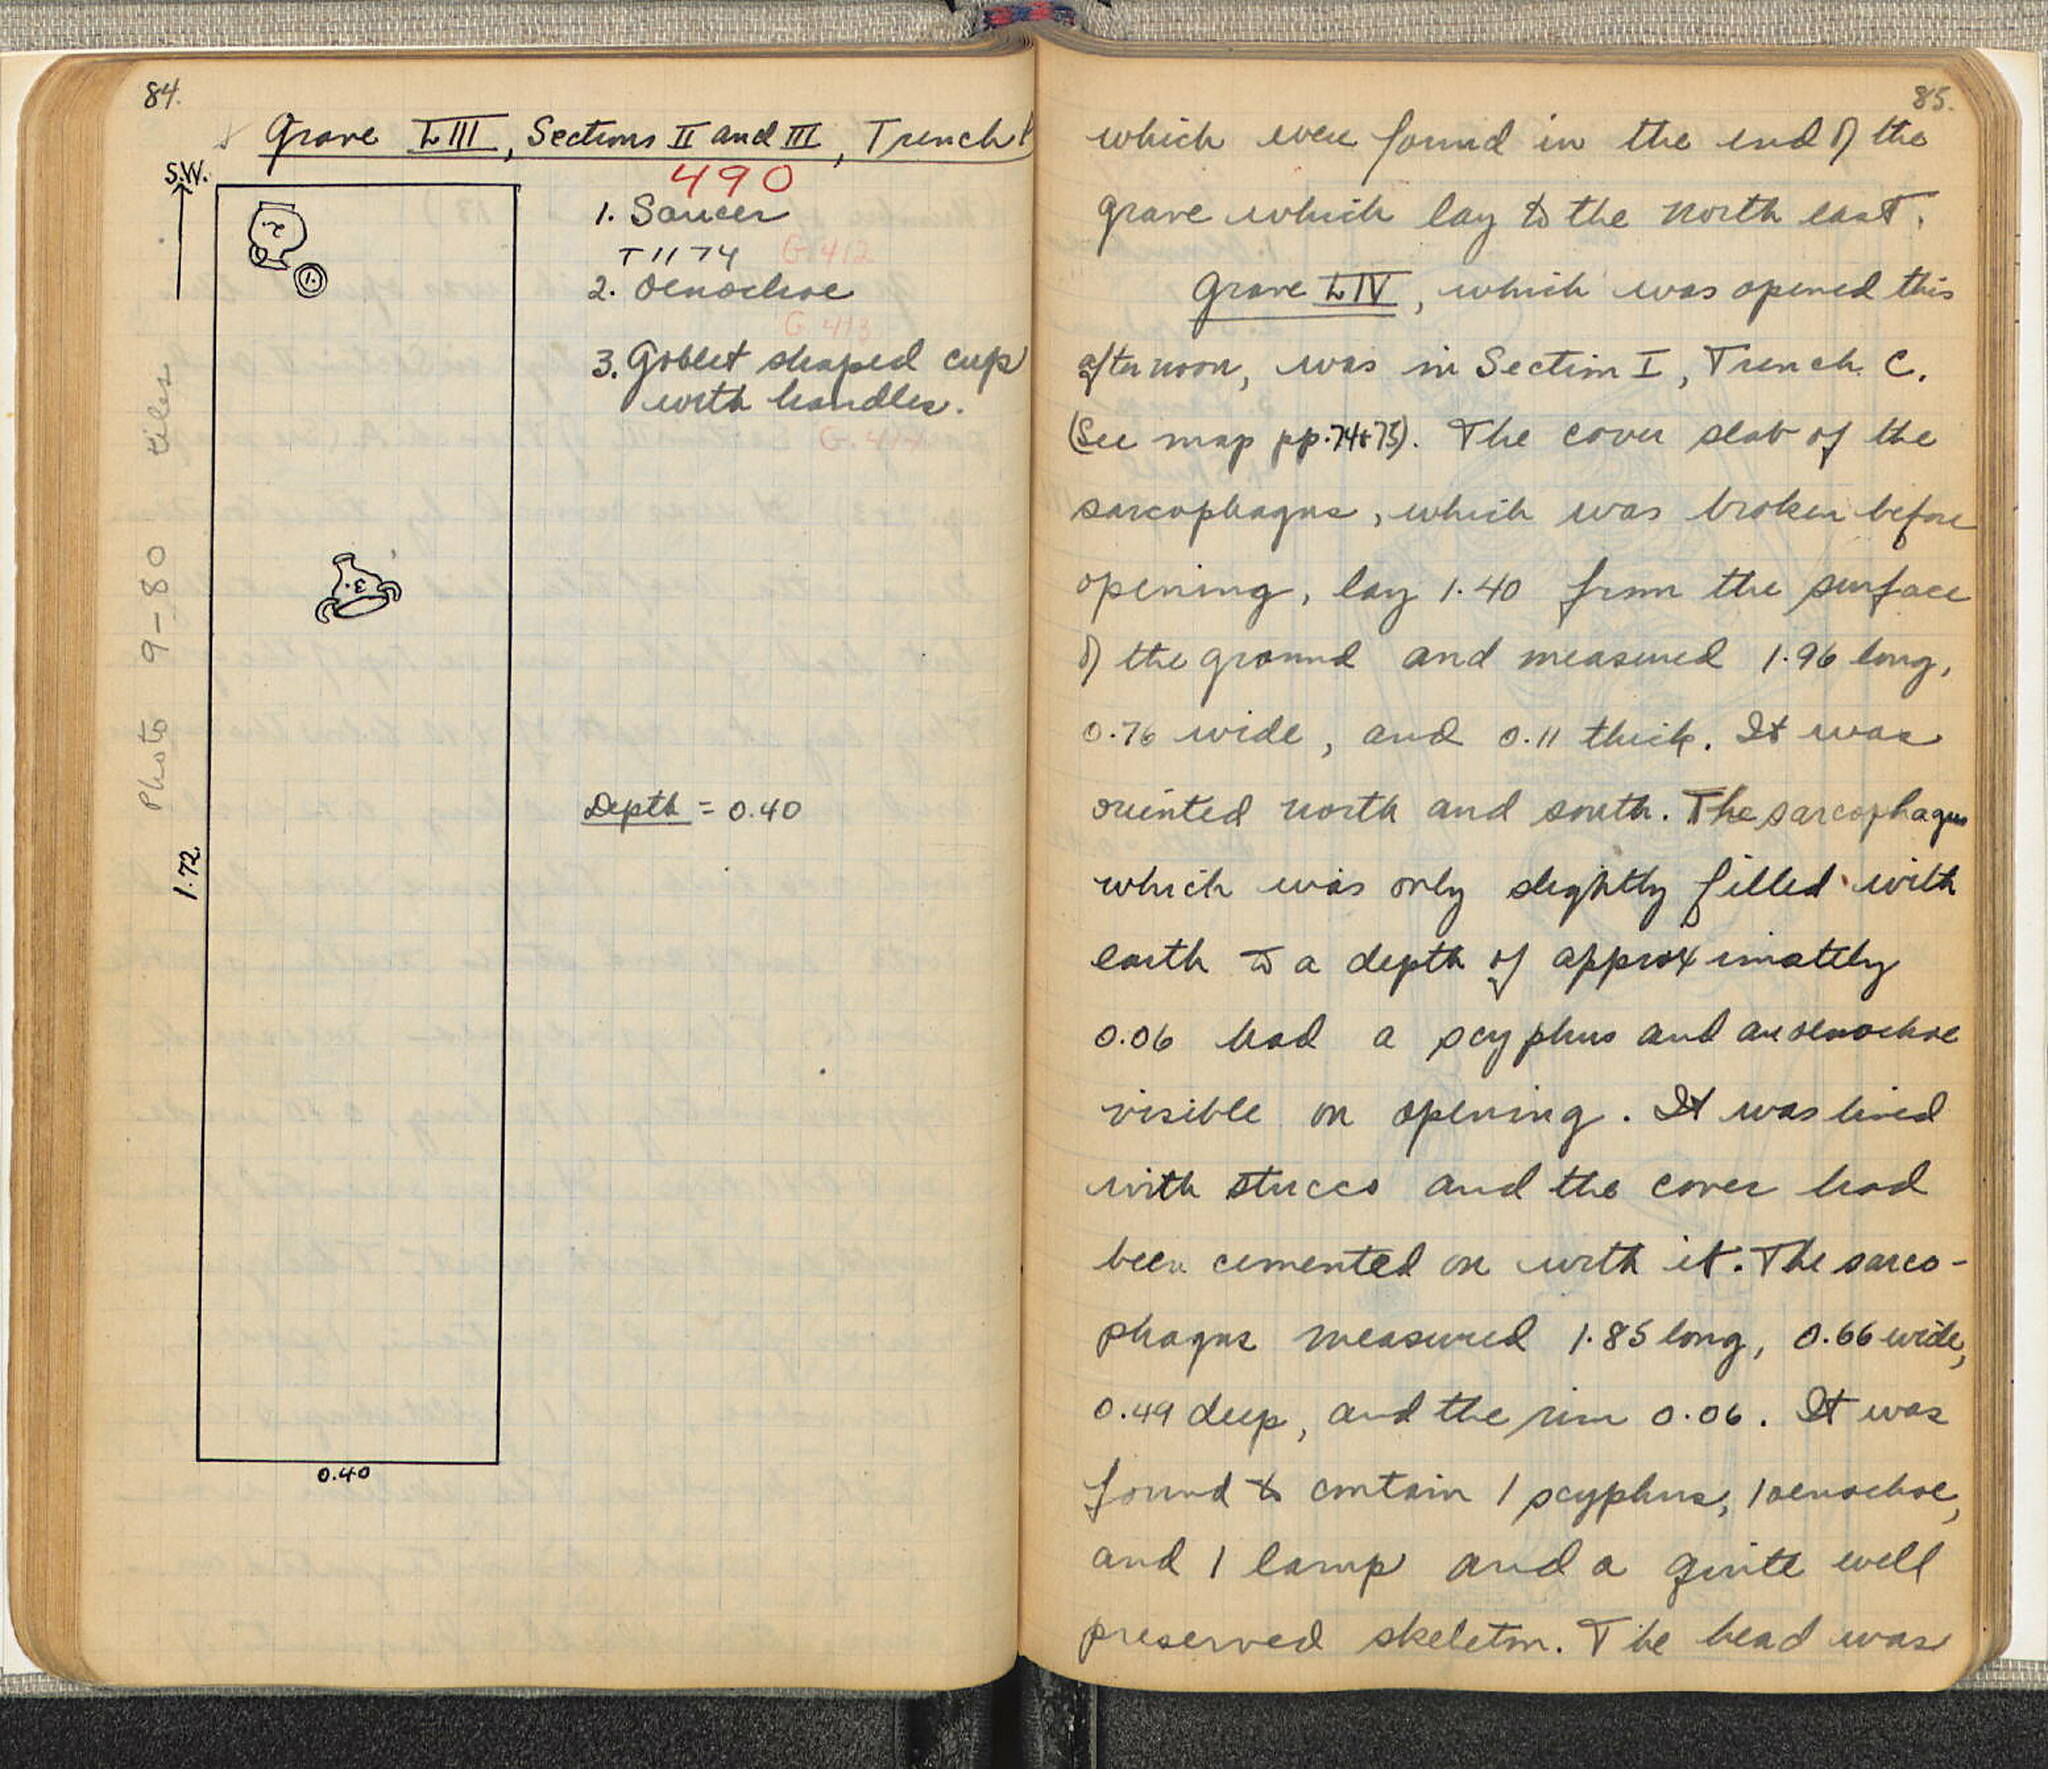 84.
Grave LIII, Sections II and III, Trench
S.W.
490
1. Saucer
T 1174 G 412
2. Oenochoe
G 413
3. Goblet shaped cup
with handles.
G. 414
2.
1.
3.
Photo 9-80 tiles
Depth = 0.40
1.72
0.40
85.
which were found in the end of the
grave which lay to the north east.
Grave LIV, which was opened this
afternoon, was in Section I, Trench C.
(See map pp. 74+75). The cover slab of the
sarcophagus, which was broken before
opening, lay 1.40 from the surface
of the ground and measured 1.96 long,
0.76 wide, and 0.11 thick. It was
oriented north and south. The sarcophagus
which was only slightly filled with
earth to a depth of approximately
0.06 had a scyphus and an oenochoe
visible on opening. It was lined
with stucco and the cover had
been cemented on with it. The sarco-
phagus measured 1.85 long, 0.66 wide,
0.49 deep, and the rim 0.06. It was
found to contain 1 scyphus, 1 oenochoe,
and 1 lamp and a quite well
preserved skeleton. The head was